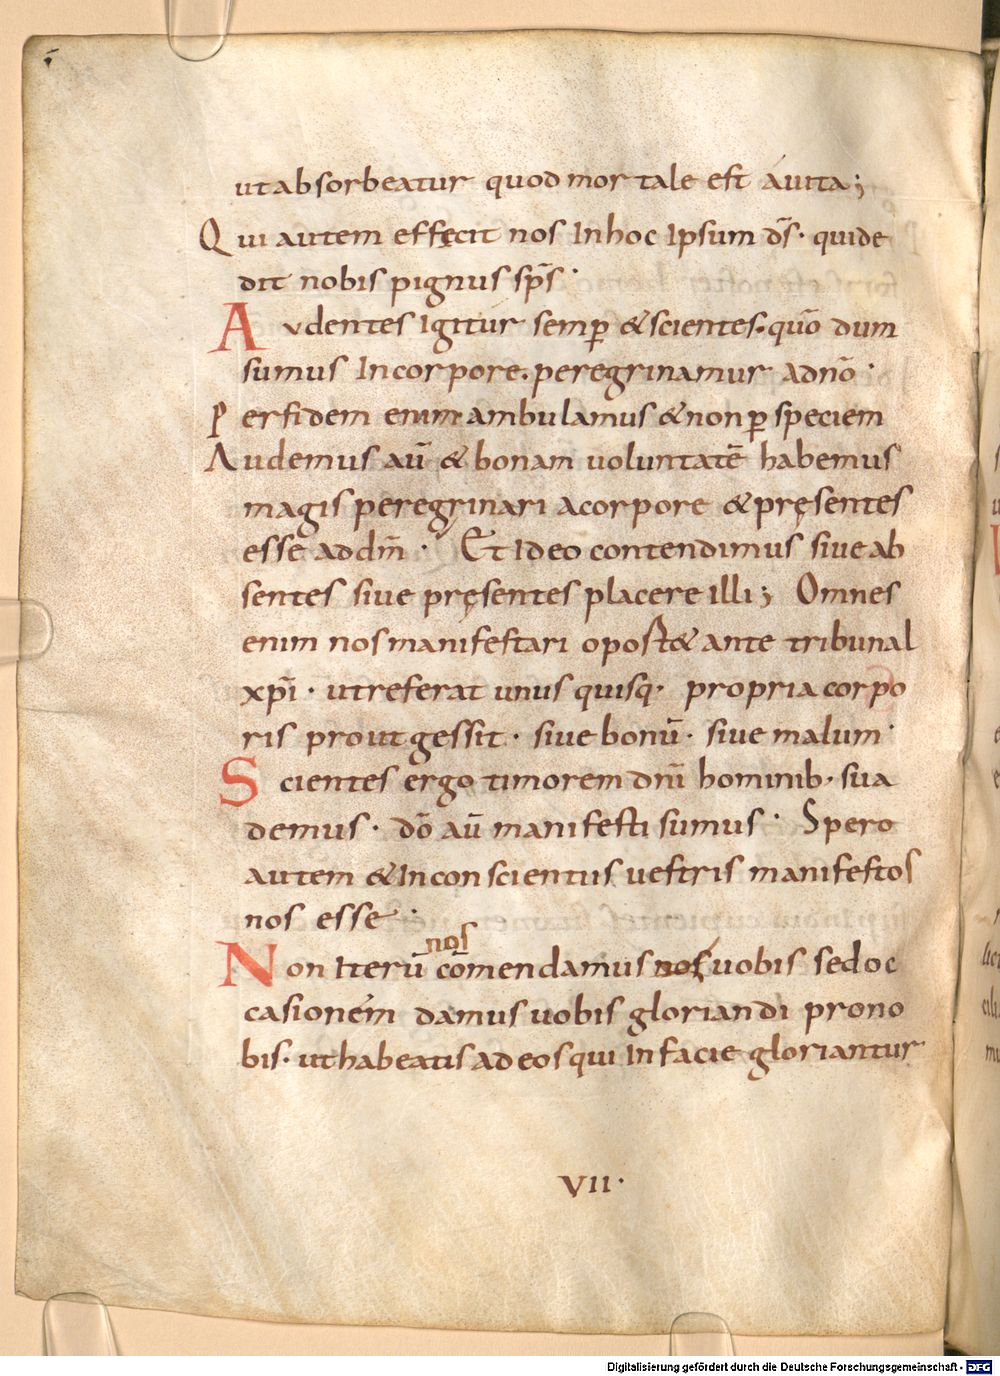 ut absorbeatur quod mortale est a uita;
Qui autem effecit nos In hoc Ipsum d̄s · qui de
dit nobis pignus sp̄s ·
Audentes Igitur semp̱ & scientes · quō dum
sumus In corpore · peregrinamur a dn̄o ·
Per fidem enim ambulamus & non p̱ speciem
Audemus aū & bonam uoluntatē habemus
magis peregrinari a corpore & pręsentes
esse ad dm̄ · Et Ideo contendimus siue ab
sentes siue pręsentes placere Illi; Omnes
enim nos manifestari oport& ante tribunal
xp̄i · ut referat unus quisq· propria corpo
ris prout gessit · siue bonū · siue malum ·
Scientes ergo timorem dn̄i hominib· sua
demus · dō aū manifesti sumus · Spero
autem & In conscientiis uestris manifestos
nos esse ·
nos
Non Iterū cōmendamus nos uobis sed oc
casionem damus uobis gloriandi pro no
bis · ut habeatis ad eos qui In facie gloriantur
VII ·
Digitalisierung gefördert durch die Deutsche Forschungsgemeinschaft - DFG